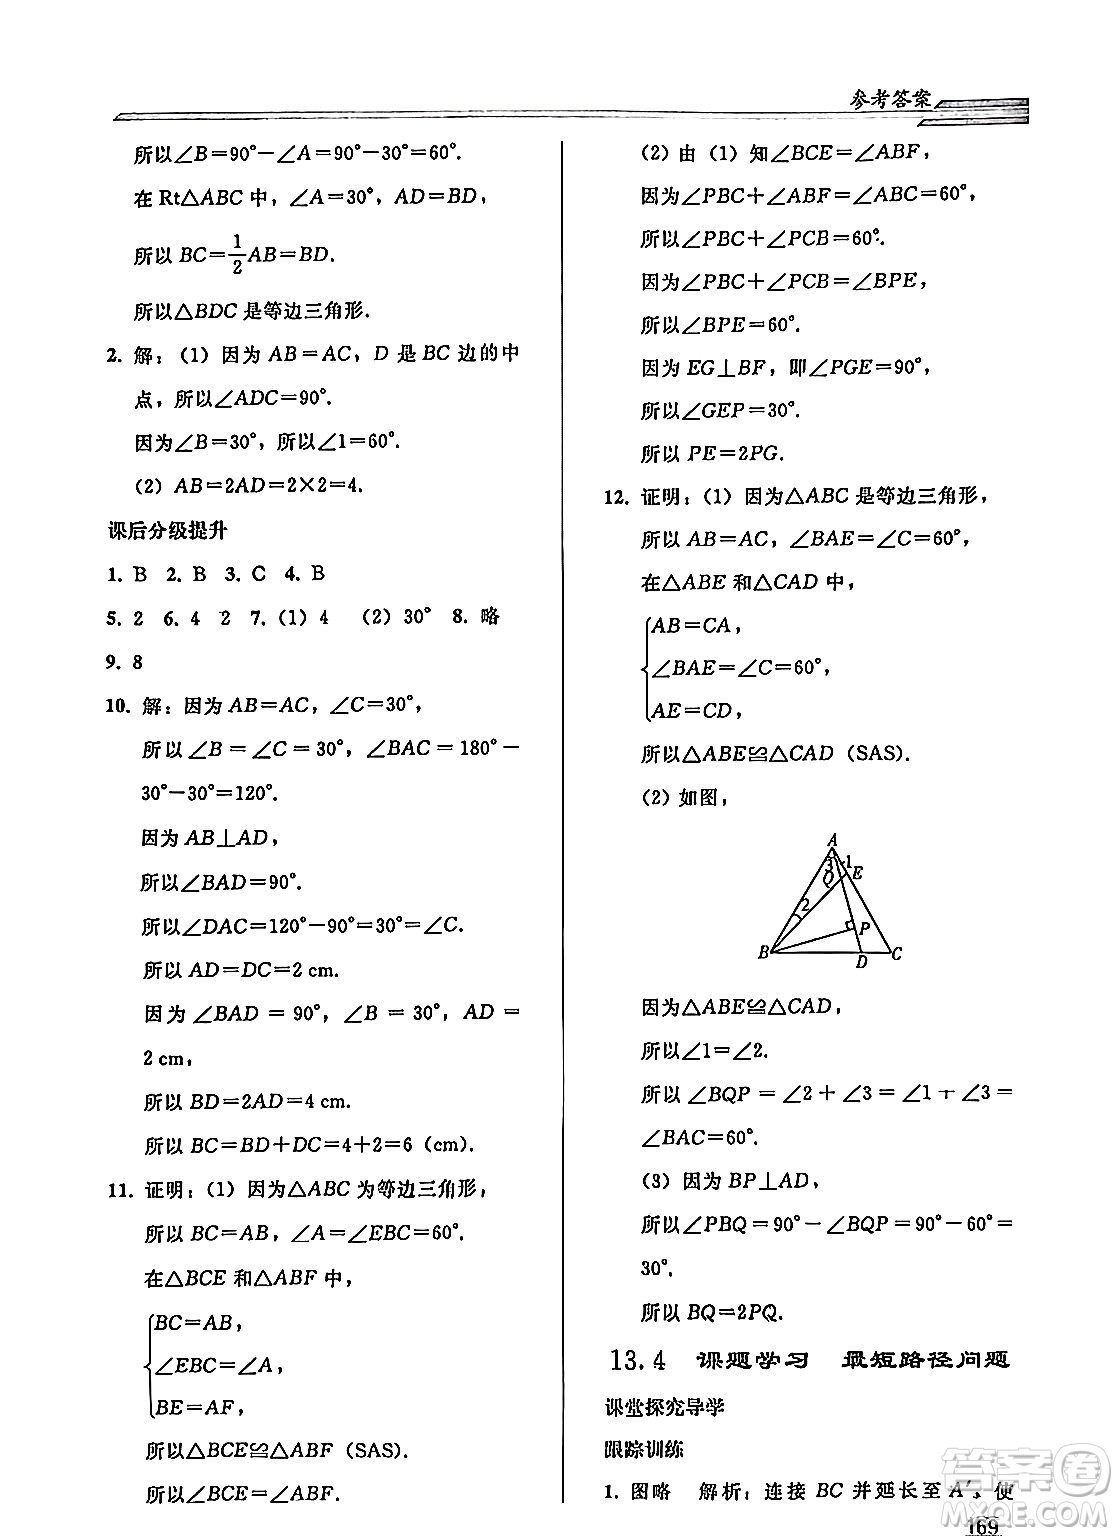 参考答案
所以∠B=90°-∠A=90°-30°=60°.
在 Rt△ABC 中，∠A=30°，AD=BD，
所以 BC=1/2AB=BD.
所以△BDC 是等边三角形.
2. 解：（1）因为 AB=AC，D 是 BC 边的中
点，所以∠ADC=90°.
因为∠B=30°，所以∠1=60°.
（2）AB=2AD=2×2=4.
课后分级提升
1. B 2. B 3. C 4. B
5. 2 6. 4 2 7.（1）4 （2）30° 8. 略
9. 8
10. 解：因为 AB=AC，∠C=30°，
所以∠B=∠C=30°，∠BAC=180°-
30°-30°=120°.
因为 AB⊥AD，
所以∠BAD=90°.
所以∠DAC=120°-90°=30°=∠C.
所以 AD=DC=2 cm.
因为∠BAD=90°，∠B=30°，AD=
2 cm，
所以 BD=2AD=4 cm.
所以 BC=BD+DC=4+2=6（cm）.
11. 证明：（1）因为△ABC 为等边三角形，
所以 BC=AB，∠A=∠EBC=60°.
在△BCE 和△ABF 中，
BC=AB，
∠EBC=∠A，
BE=AF，
所以△BCE≌△ABF（SAS）.
所以∠BCE=∠ABF.
（2）由（1）知∠BCE=∠ABF，
因为∠PBC+∠ABF=∠ABC=60°，
所以∠PBC+∠PCB=60°.
因为∠PBC+∠PCB=∠BPE，
所以∠BPE=60°.
因为 EG⊥BF，即∠PGE=90°，
所以∠GEP=30°.
所以 PE=2PG.
12. 证明：（1）因为△ABC 是等边三角形，
所以 AB=AC，∠BAE=∠C=60°，
在△ABE 和△CAD 中，
AB=CA，
∠BAE=∠C=60°，
AE=CD，
所以△ABE≌△CAD（SAS）.
（2）如图，
A
3 1
Q E
2
P
B D C
因为△ABE≌△CAD，
所以∠1=∠2.
所以∠BQP=∠2+∠3=∠1+∠3=
∠BAC=60°.
（3）因为 BP⊥AD，
所以∠PBQ=90°-∠BQP=90°-60°=
30°.
所以 BQ=2PQ.
13.4 课题学习 最短路径问题
课堂探究导学
跟踪训练
1. 图略 解析：连接 BC 并延长至 A′，使
169
答案圈
MXQE.COM